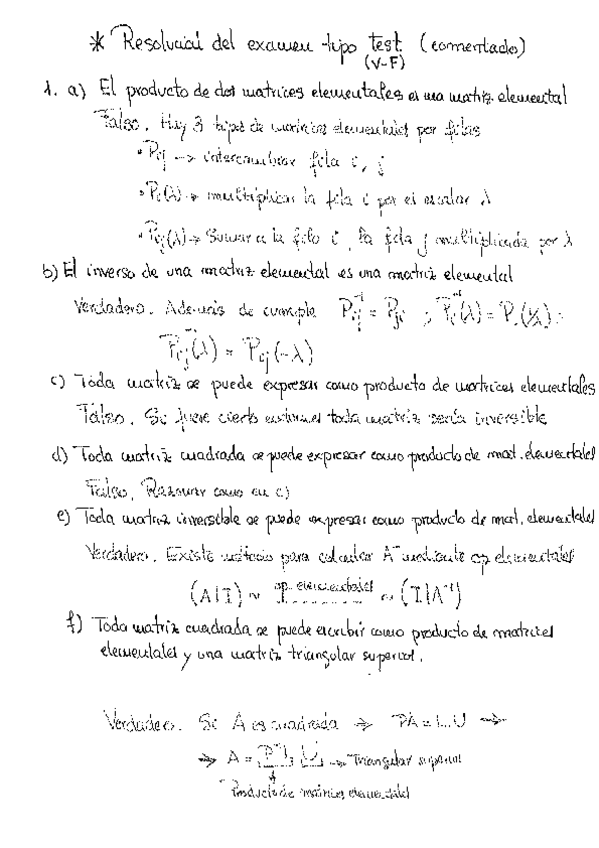 * Resolución del examen tipo test (comentado)
(V-F)
1. a) El producto de dos matrices elementales es una matriz elemental
Falso. Hay 3 tipos de matrices elementales por filas
• Pij → intercambiar fila i, j
• Pi(λ) → multiplicar la fila i por el escalar λ
• Pij(λ) → Sumar a la fila i, la fila j multiplicada por λ
b) El inverso de una matriz elemental es una matriz elemental
Verdadero. Además se cumple Pij⁻¹ = Pji ; Pi⁻¹(λ) = Pi(1/λ) ;
Pij⁻¹(λ) = Pij(-λ)
c) Toda matriz se puede expresar como producto de matrices elementales
Falso. Si fuere cierto entonces toda matriz sería inversible
d) Toda matriz cuadrada se puede expresar como producto de mat. elementales
Falso. Razonar como en c)
e) Toda matriz inversible se puede expresar como producto de mat. elementales
Verdadero. Existe método para calcular A⁻¹ mediante op elementales
(A|I) ~ op. elementales ~ (I|A⁻¹)
f) Toda matriz cuadrada se puede escribir como producto de matrices
elementales y una matriz triangular superior.
Verdadero. Si A es cuadrada ⇒ PA = L.U ⇒
⇒ A = P⁻¹L U → Triangular superior
Producto de matrices elementales